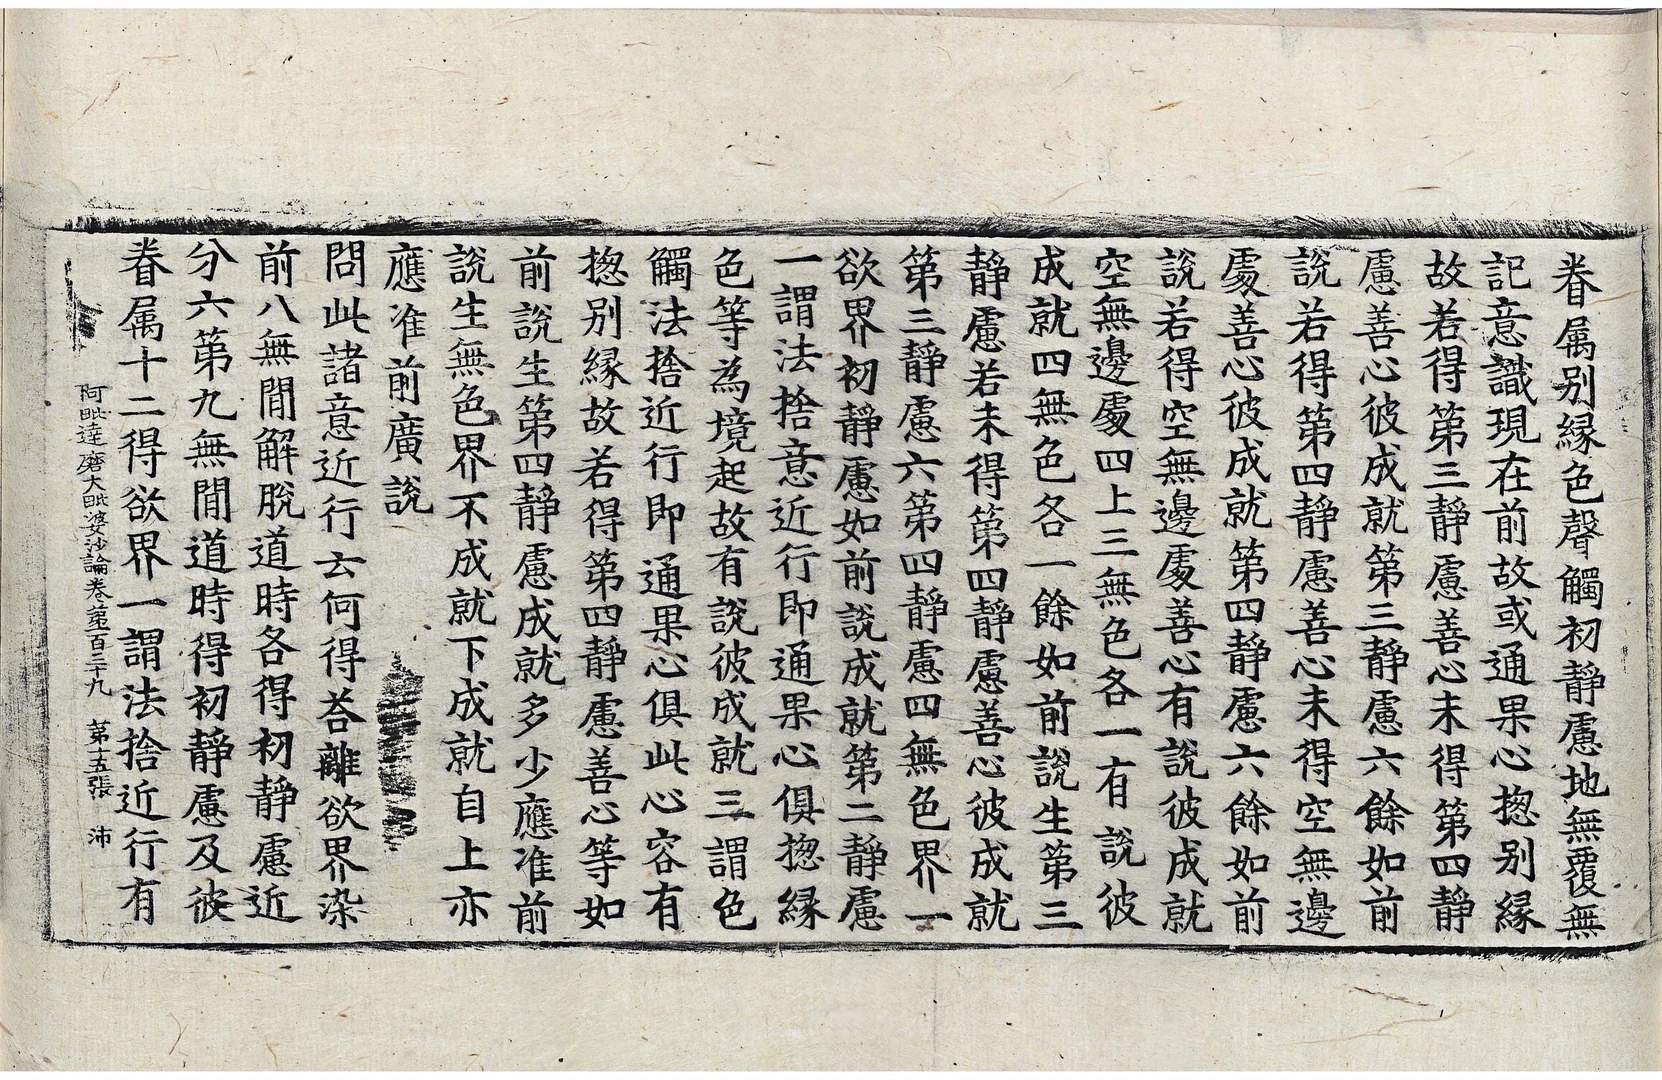 眷属别緣色聲觸初靜慮地無覆無
記意識現在前故或通果心揔别緣
故若得第三靜慮善心未得第四靜
慮善心彼成就第三靜慮六餘如前
說若得第四靜慮善心未得空無邊
處善心彼成就第四靜慮六餘如前
說若得空無邊處善心有說彼成就
空無邊處四上三無色各一有說彼
成就四無色各一餘如前說生第三
靜慮若未得第四靜慮善心彼成就
第三靜慮六第四靜慮四無色界一
欲界初靜慮如前說成就第二靜慮
一謂法捨意近行即通果心俱揔緣
色等為境起故有說彼成就三謂色
觸法捨近行即通果心俱此心容有
揔别緣故若得第四靜慮善心等如
前說生第四靜慮成就多少應准前
說生無色界不成就下成就自上亦
應准前廣說
問此諸意近行云何得荅離欲界染
前八無閒解脫道時各得初靜慮近
分六第九無閒道時得初靜慮及彼
眷属十二得欲界一謂法捨近行有
阿毗達磨大毗婆沙論卷第一百三十九 第十五張 沛